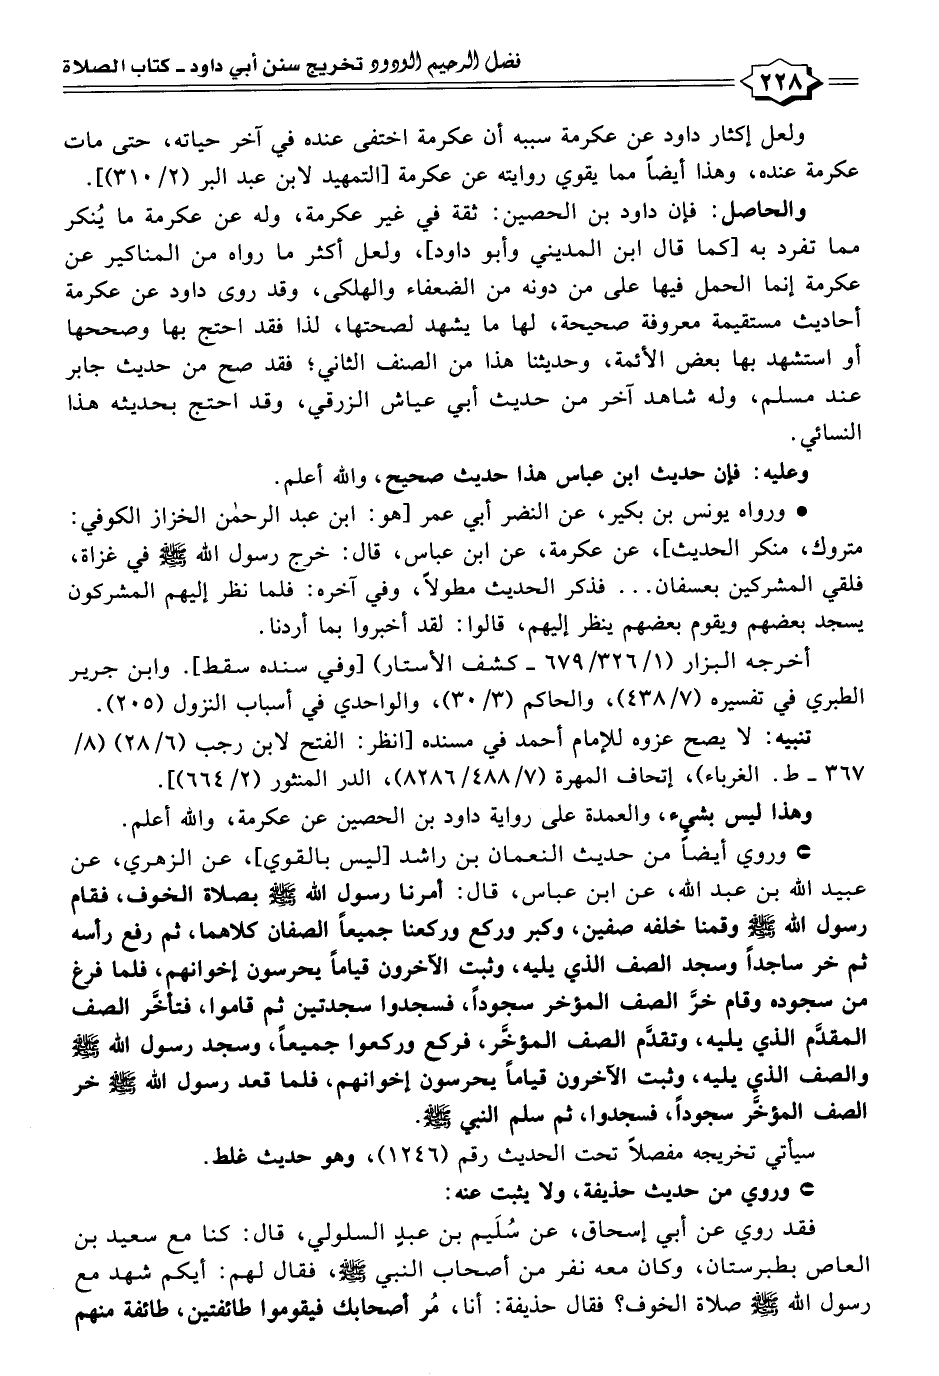 فضل الرحيم الودود تخريج سنن أبي داود - كتاب الصلاة
٢٢٨
ولعل إكثار داود عن عكرمة سببه أن عكرمة اختفى عنده في آخر حياته، حتى مات
عكرمة عنده، وهذا أيضاً مما يقوي روايته عن عكرمة [التمهيد لابن عبد البر (٢/ ٣١٠)].
والحاصل: فإن داود بن الحصين: ثقة في غير عكرمة، وله عن عكرمة ما يُنكر
مما تفرد به [كما قال ابن المديني وأبو داود]، ولعل أكثر ما رواه من المناكير عن
عكرمة إنما الحمل فيها على من دونه من الضعفاء والهلكى، وقد روى داود عن عكرمة
أحاديث مستقيمة معروفة صحيحة، لها ما يشهد لصحتها، لذا فقد احتج بها وصححها
أو استشهد بها بعض الأئمة، وحديثنا هذا من الصنف الثاني؛ فقد صح من حديث جابر
عند مسلم، وله شاهد آخر من حديث أبي عياش الزرقي، وقد احتج بحديثه هذا
النسائي.
وعليه: فإن حديث ابن عباس هذا حديث صحيح، والله أعلم.
• ورواه يونس بن بكير، عن النضر أبي عمر [هو: ابن عبد الرحمٰن الخزاز الكوفي:
متروك، منكر الحديث]، عن عكرمة، عن ابن عباس، قال: خرج رسول الله ﷺ في غزاة،
فلقي المشركين بعسفان... فذكر الحديث مطولاً، وفي آخره: فلما نظر إليهم المشركون
يسجد بعضهم ويقوم بعضهم ينظر إليهم، قالوا: لقد أخبروا بما أردنا.
أخرجه البزار (١/ ٣٢٦/ ٦٧٩ - كشف الأستار) [وفي سنده سقط]. وابن جرير
الطبري في تفسيره (٧/ ٤٣٨)، والحاكم (٣/ ٣٠)، والواحدي في أسباب النزول (٢٠٥).
تنبيه: لا يصح عزوه للإمام أحمد في مسنده [انظر: الفتح لابن رجب (٦/ ٢٨) (٨/
٣٦٧ - ط. الغرباء)، إتحاف المهرة (٧/ ٤٨٨/ ٨٢٨٦)، الدر المنثور (٢/ ٦٦٤)].
وهذا ليس بشيء، والعمدة على رواية داود بن الحصين عن عكرمة، والله أعلم.
⊃ وروي أيضاً من حديث النعمان بن راشد [ليس بالقوي]، عن الزهري، عن
عبيد الله بن عبد الله، عن ابن عباس، قال: أمرنا رسول الله ﷺ بصلاة الخوف، فقام
رسول الله ﷺ وقمنا خلفه صفين، وكبر وركع وركعنا جميعاً الصفان كلاهما، ثم رفع رأسه
ثم خر ساجداً وسجد الصف الذي يليه، وثبت الآخرون قياماً يحرسون إخوانهم، فلما فرغ
من سجوده وقام خرَّ الصف المؤخر سجوداً، فسجدوا سجدتين ثم قاموا، فتأخَّر الصف
المقدَّم الذي يليه، وتقدَّم الصف المؤخَّر، فركع وركعوا جميعاً، وسجد رسول الله ﷺ
والصف الذي يليه، وثبت الآخرون قياماً يحرسون إخوانهم، فلما قعد رسول الله ﷺ خر
الصف المؤخَّر سجوداً، فسجدوا، ثم سلم النبي ﷺ.
سيأتي تخريجه مفصلاً تحت الحديث رقم (١٢٤٦)، وهو حديث غلط.
⊃ وروي من حديث حذيفة، ولا يثبت عنه:
فقد روي عن أبي إسحاق، عن سُلَيم بن عبدٍ السلولي، قال: كنا مع سعيد بن
العاص بطبرستان، وكان معه نفر من أصحاب النبي ﷺ، فقال لهم: أيكم شهد مع
رسول الله ﷺ صلاة الخوف؟ فقال حذيفة: أنا، مُر أصحابك فيقوموا طائفتين، طائفة منهم